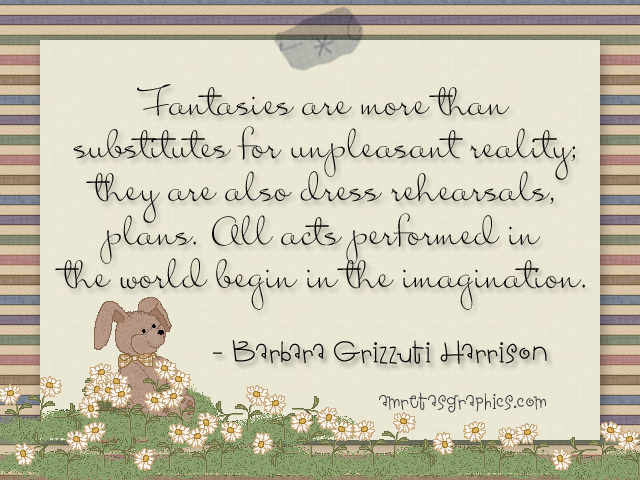 Fantasies are more than
substitutes for unpleasant reality;
they are also dress rehearsals,
plans. All acts performed in
the world begin in the imagination.
- Barbara Grizzuti Harrison
amretasgraphics.com